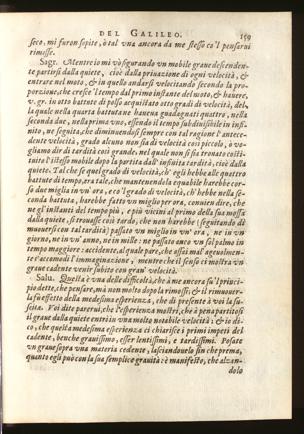 DEL GALILEO. 159
seco, mi furon sopite, ò tal una ancora da me stesso co'l pensarui
rimosse.
Sagr. Mentre io mi vò figurando vn mobile graue descenden-
te partirsi dalla quiete, cioè dalla priuazione di ogni velocità, &
entrare nel moto, & in quello andarsi velocitando secondo la pro-
porzione, che cresce 'l tempo dal primo instante del moto, & hauere,
v. gr. in otto battute di polso acquistato otto gradi di velocità, del-
la quale nella quarta battuta ne haueua guadagnati quattro, nella
seconda due, nella prima vno, essendo il tempo subdiuisibile in infi-
nito, ne seguita, che diminuendosi sempre con tal ragione l'antece-
dente velocità, grado alcuno non sia di velocità così piccolo, ò vo-
gliamo dir di tardità così grande, nel quale non si sia trouato costi-
tuito l'istesso mobile dopo la partita dall' infinita tardità, cioè dalla
quiete. Tal che se quel grado di velocità, ch' egli hebbe alle quattro
battute di tempo, era tale, che mantenendola equabile harebbe cor-
so due miglia in vn' ora, e co'l grado di velocità, ch' hebbe nella se-
conda battuta, harebbe fatto vn miglio per ora, conuien dire, che
ne gl'instanti del tempo più, e più vicini al primo della sua mossa
dalla quiete, si trouasse così tardo, che non harebbe (seguitando di
muouersi con tal tardità) passato vn miglio in vn' ora, ne in vn
giorno, ne in vn' anno, ne in mille: ne passato anco vn sol palmo in
tempo maggiore: accidente, al quale pare, che assai mal' ageuolmen-
te s'accomodi l'immaginazione, mentre che il senso ci mostra vn
graue cadente venir subito con gran' velocità.
Salu. Questa è vna delle difficoltà, che à me ancora su'l princi-
pio dette, che pensare, mà non molto dopo la rimossi; & il rimuouer-
la fù effetto della medesima esperienza, che di presente à voi la su-
scita. Voi dite parerui, che l'esperienza mostri, che à pena partitosi
il graue dalla quiete entri in vna molto notabile velocità; & io di-
co, che questa medesima esperienza ci chiarisce i primi impeti del
cadente, benche grauissimo, esser lentissimi, e tardissimi. Posate
vn graue sopra vna materia cedente, lasciandouelo sin che prema,
quanto egli può con la sua semplice grauità: è manifesto, che alzan-
dolo